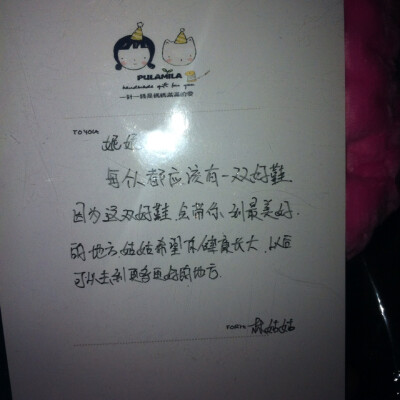 PULAMILA
handmade gift for you
TO YOU
妮妮
每个人都应该有一双好鞋
因为这双好鞋,会带你到最美好
的地方,姑姑希望你健康长大,以后
可以去到更多更好的地方.
FORM
姑姑